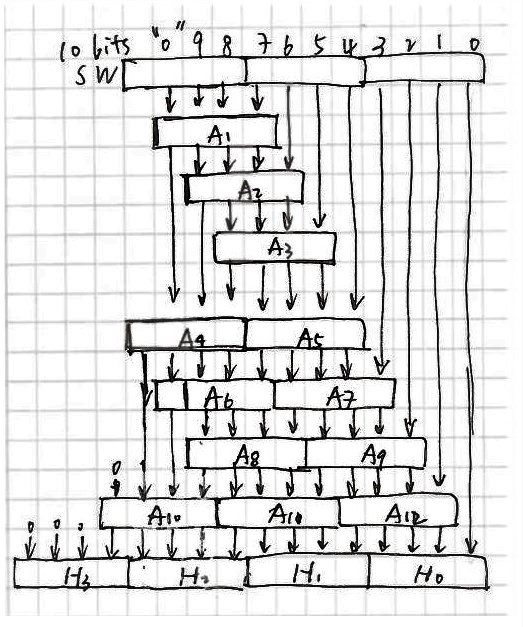 10 bits "0" 9 8 7 6 5 4 3 2 1 0
SW
A1
A2
A3
A4 A5
A6 A7
A8 A9
0
A10 A11 A12
0 0 0
H3 H2 H1 H0